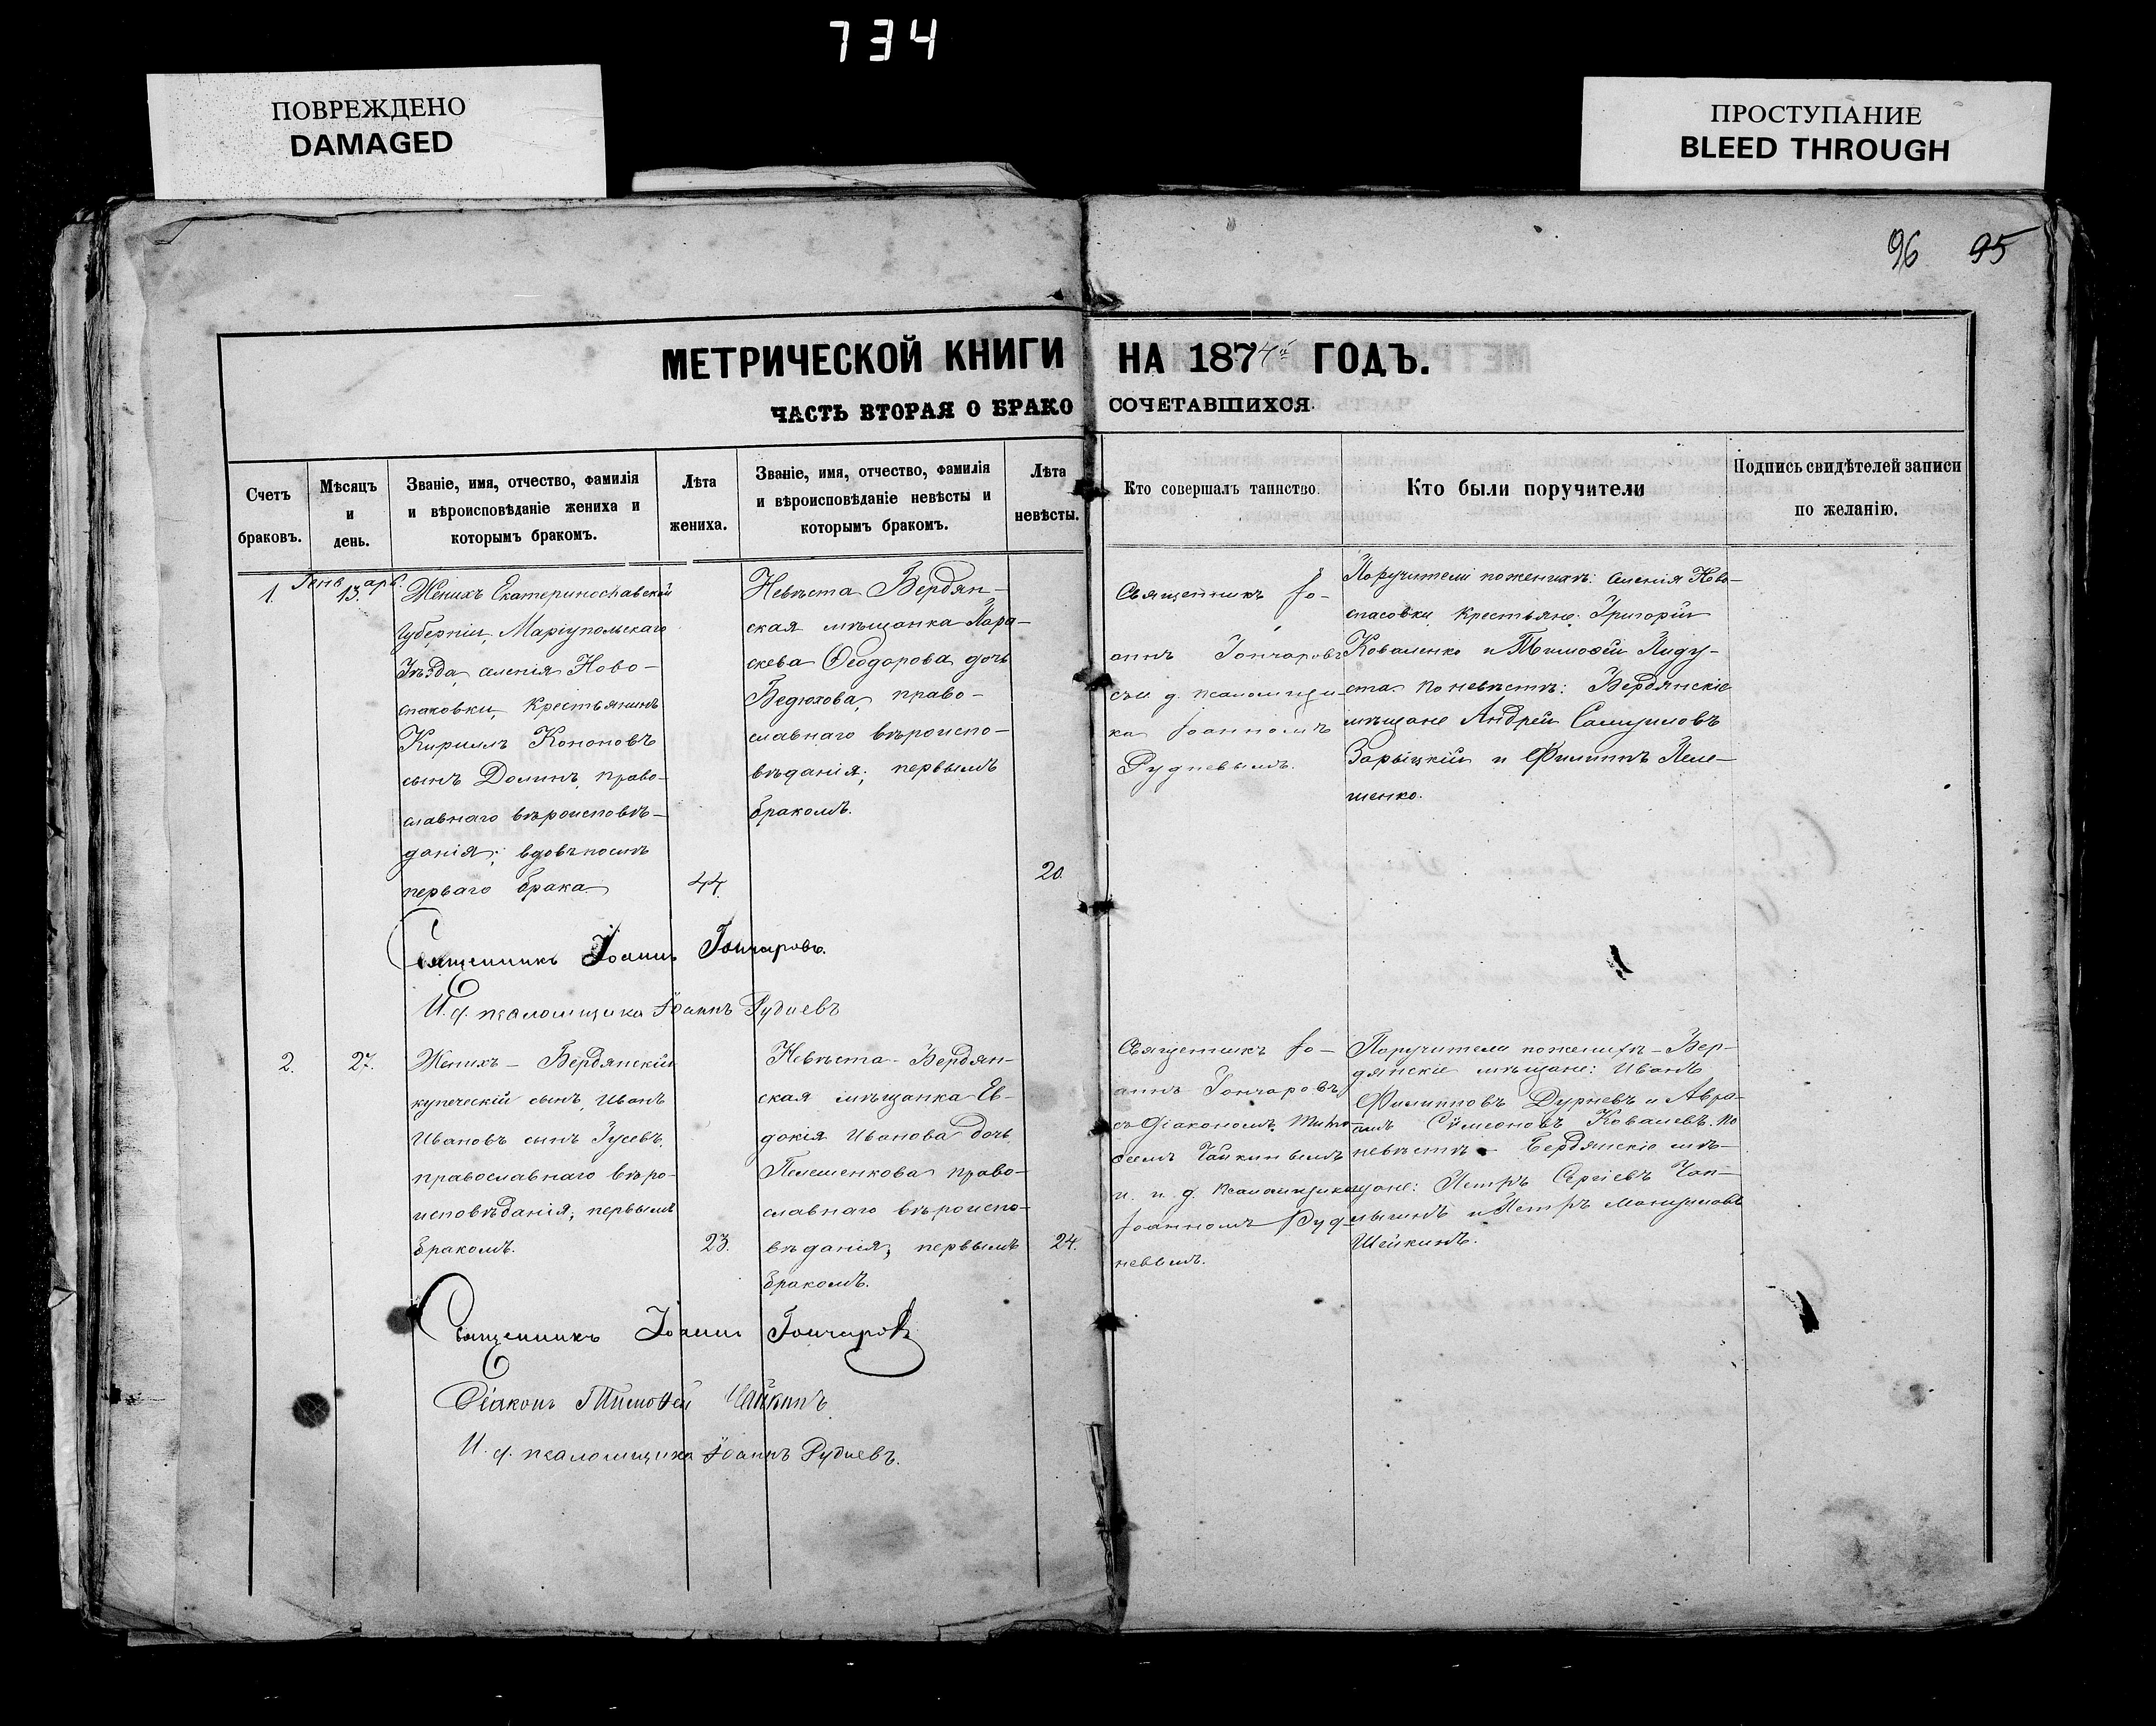 734
ПОВРЕЖДЕНО
DAMAGED
ПРОСТУПАНИЕ
BLEED THROUGH
96 95
МЕТРИЧЕСКОЙ КНИГИ НА 1874й ГОДЪ.
ЧАСТЬ ВТОРАЯ О БРАКОСОЧЕТАВШИХСЯ.
Счетъ
браковъ.
Мѣсяцъ
и
день.
Званіе, имя, отчество, фамилія
и вѣроисповѣданіе жениха и
которымъ бракомъ.
Лѣта
жениха.
Званіе, имя, отчество, фамилія
и вѣроисповѣданіе невѣсты и
которымъ бракомъ.
Лѣта
невѣсты.
Кто совершалъ таинство.
Кто были поручители
Подпись свидѣтелей записи
по желанію.
1.
Генварь.
13.
Женихъ Екатеринославской
Губерніи, Маріупольскаго
Уѣзда, селенія Ново-
спасовки, крестьянинъ
Кириллъ Кононовъ
сынъ Долинъ, право-
славнаго вѣроисповѣ-
данія; вдовъ послѣ
перваго брака
44.
Невѣста Бердян-
ская мѣщанка Пара-
скева Ѳеодорова дочь
Бедюхова, право-
славнаго вѣроиспо-
вѣданія; первымъ
бракомъ.
20.
Священникъ Іо-
аннъ Гончаровъ
съ и д. псаломщи-
ка Іоанномъ
Рудневымъ.
Поручители по женихѣ: селенія Ново-
спасовки крестьяне: Григорій
Коваленко и Тимоѳей
по невѣстѣ: Бердянскіе
мѣщане Андрей Самуиловъ
Зарыцкій и Филиппъ Пеле-
шенко.
Священникъ Іоаннъ Гончаровъ.
И. д. псаломщика Іоаннъ Рудневъ
2.
27.
Женихъ - Бердянскій
купеческій сынъ, Иванъ
Ивановъ сынъ Гусевъ,
православнаго вѣро-
исповѣданія; первымъ
бракомъ.
23.
Невѣста - Бердян-
ская мѣщанка Ев-
докія Иванова дочь
Пелешенкова право-
славнаго вѣроиспо-
вѣданія; первымъ
бракомъ.
24.
Священникъ Іо-
аннъ Гончаровъ
съ Діакономъ Тимо-
ѳеемъ Чайкинымъ
и и. д. псаломщика
Іоанномъ Руд-
невымъ.
Поручители по женихѣ - Бер-
дянскіе мѣщане: Иванъ
Филипповъ Дурневъ и Авра-
амъ Сѵмеоновъ Ковалевъ. По
невѣстѣ - Бердянскіе мѣ-
щане: Петръ Сергіевъ Чап-
лыгинъ и Петръ
Шейкинъ.
Священникъ Іоаннъ Гончаровъ
Діаконъ Тимоѳей Чайкинъ
И. д. псаломщика Іоаннъ Рудневъ.